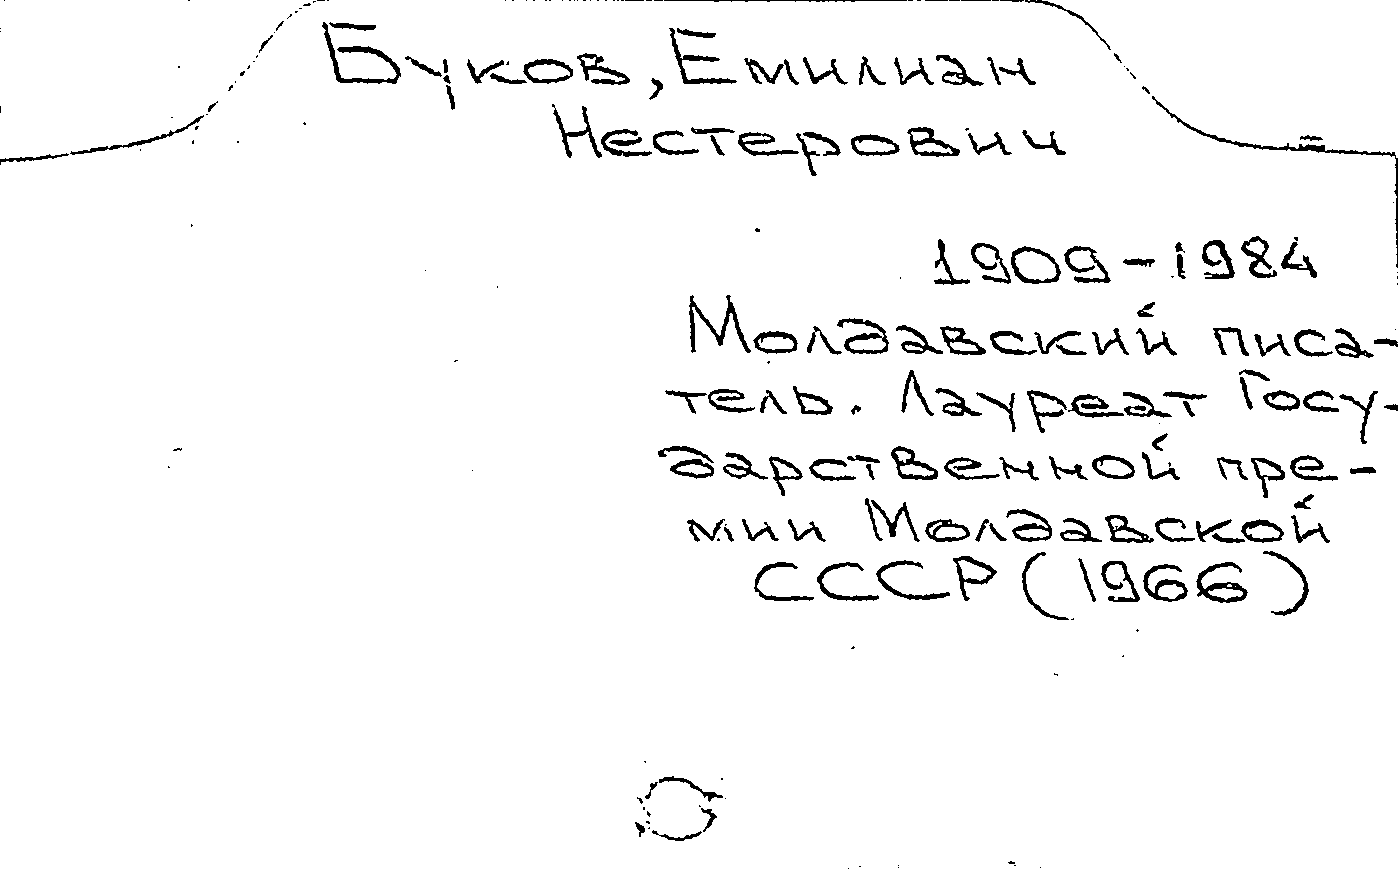 Буков, Емилиан
Нестерович
1909-1984
Молдавский писа-
тель. Лауреат Госу-
дарственной пре-
мии Молдавской
СССР (1966)